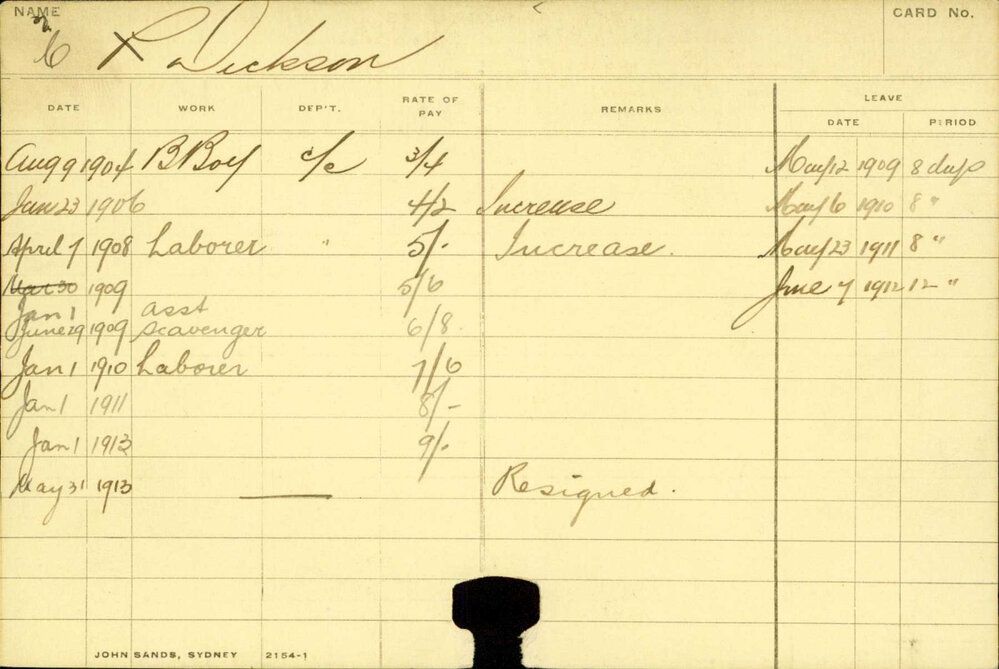 NAME CARD No.
R Dickson
DATE WORK DEP'T. RATE OF PAY REMARKS LEAVE
DATE PERIOD
Aug 9 1904 B Boy c/c 3/4 May 12 1909 8 days
Jan 23 1906 4/2 Increase May 6 1910 8 "
April 7 1908 Laborer " 5/- Increase. May 23 1911 8 "
Mar 30 1909 5/6 June 7 1912 12 "
Jan 1
June 29 1909 asst scavenger 6/8
Jan 1 1910 Laborer 7/6
Jan 1 1911 8/-
Jan 1 1913 9/-
May 31 1913 Resigned.
JOHN SANDS, SYDNEY 2154-1